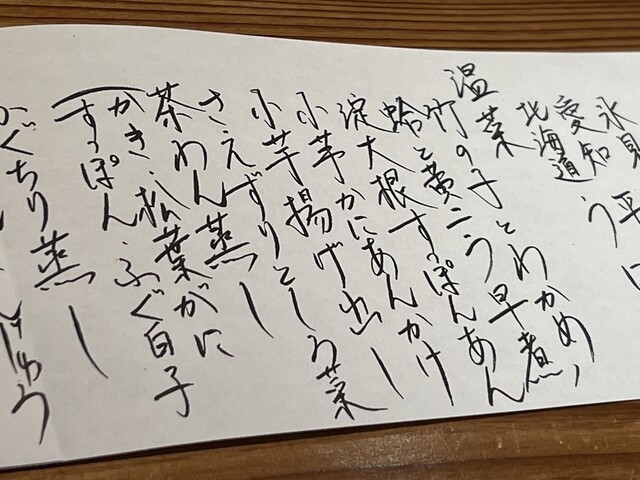 氷見
愛知
北海道
平
うに
温菜
竹の子とわかめ、
蛤と黄ニラ早煮
淀大根すっぽんあん
小芋かにあんかけ
小芋揚げ出し
さえずりとしろ菜
茶わん蒸し
かき・松葉がに
すっぽん・ふぐ白子
ぐちり蒸し
じゅう